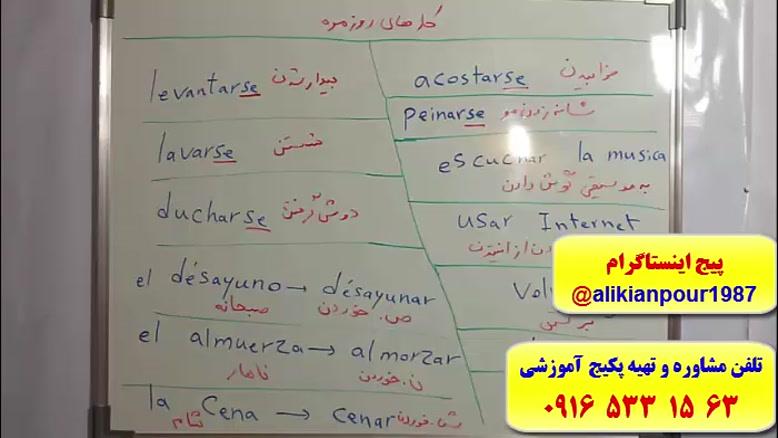 کارهای روزمره
levantarse بیدار شدن
lavarse شستن
ducharse دوش گرفتن
el désayuno → désayunar
صبحانه ص.خوردن
el almuerza → almorzar
ناهار ن.خوردن
la cena → cenar شام.خوردن
شام
acostarse خوابیدن
peinarse شانه زدن مو
escuchar la musica
به موسیقی گوش دادن
usar Internet
از اینترنت
پیج اینستاگرام
@alikianpour1987
تلفن مشاوره و تهیه پکیج آموزشی
۰۹۱۶ ۵۳۳ ۱۵ ۶۳